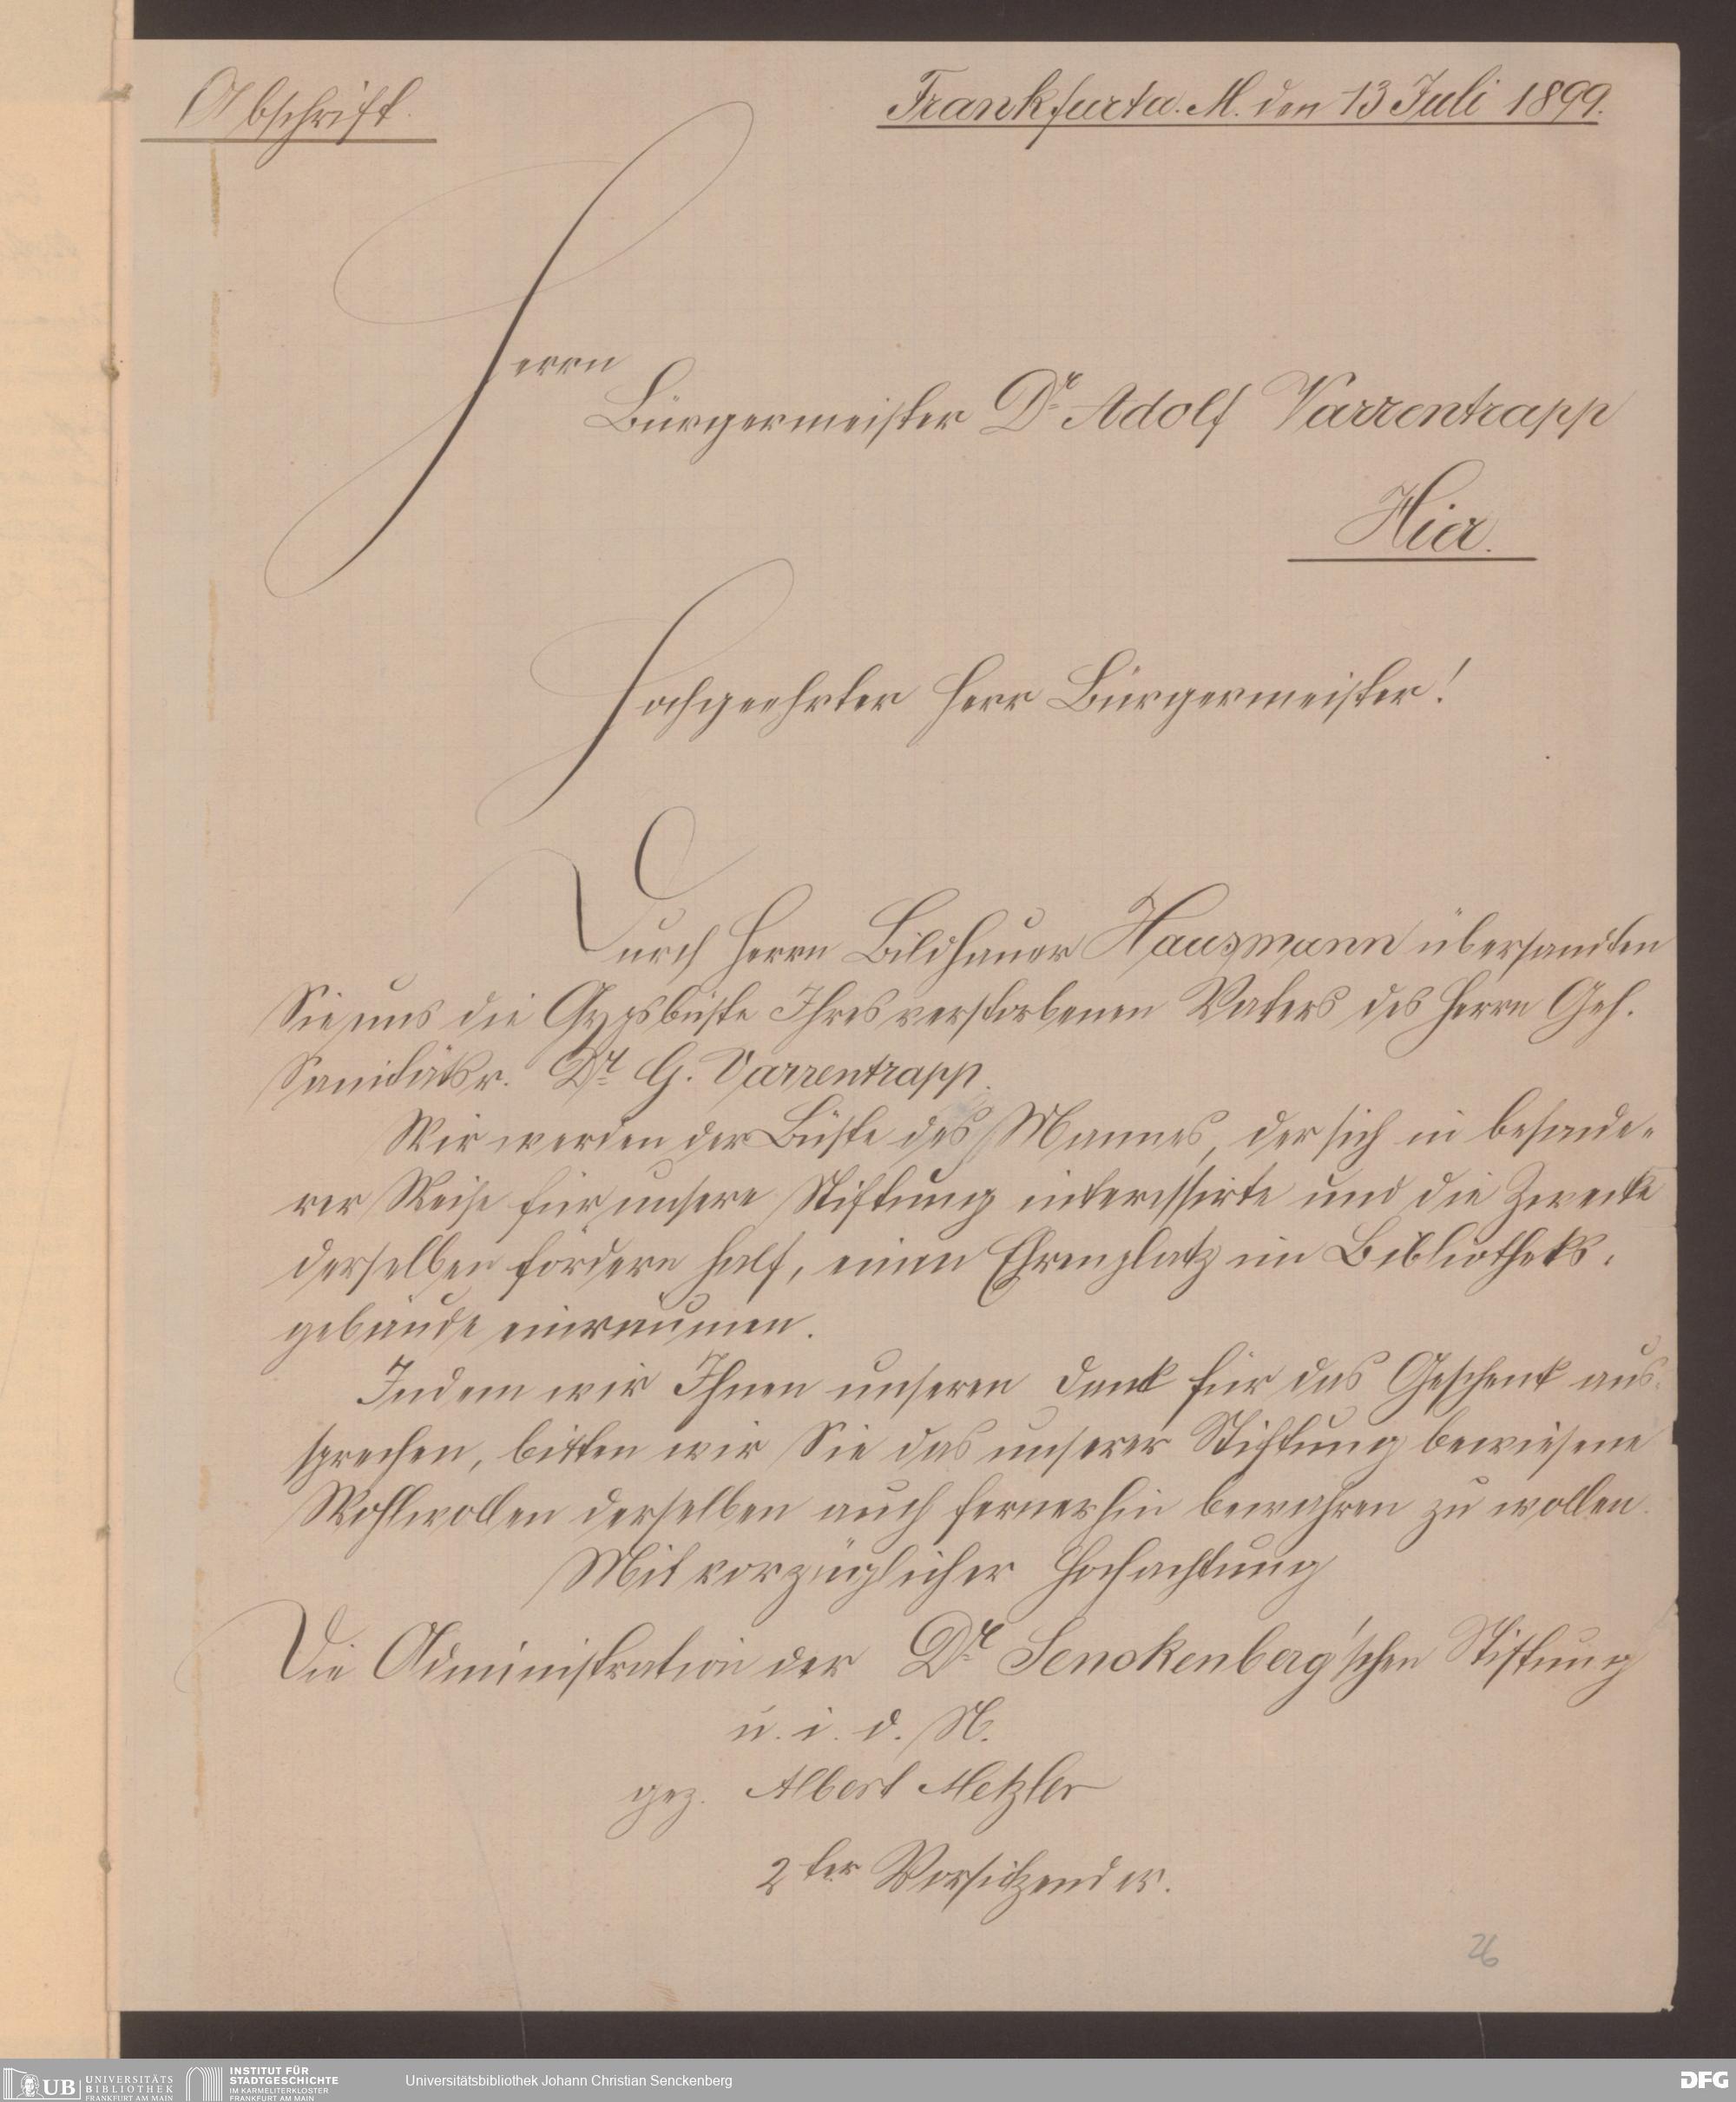 Abschrift.
Frankfurt a. M. den 13 Juli 1899.
Herrn
Bürgermeister Dr Adolf Varrentrapp
Hier.
Hochgeehrter Herr Bürgermeister!
Durch Herrn Bildhauer Hausmann übersandten
Sie uns die Gypsbüste Ihres verstorbenen Vaters des Herrn Geh.
Sanitätsr. Dr G. Varrentrapp.
Wir werden der Büste des Mannes, der sich in besonde-
rer Weise für unsere Stiftung interessirte und die Zwecke
derselben fördern half, einen Ehrenplatz im Bibliotheks-
gebäude einräumen.
Indem wir Ihnen unseren Dank für das Geschenk aus-
sprechen, bitten wir Sie das unserer Stiftung bewiesene
Wohlwollen derselben auch fernerhin bewahren zu wollen.
Mit vorzüglicher Hochachtung
Die Administration der Dr Senckenberg'schen Stiftung
u. i. d. N.
gez. Albert Metzler
2ter Vorsitzender.
26
UB UNIVERSITÄTS BIBLIOTHEK FRANKFURT AM MAIN
INSTITUT FÜR STADTGESCHICHTE IM KARMELITERKLOSTER FRANKFURT AM MAIN
Universitätsbibliothek Johann Christian Senckenberg
DFG